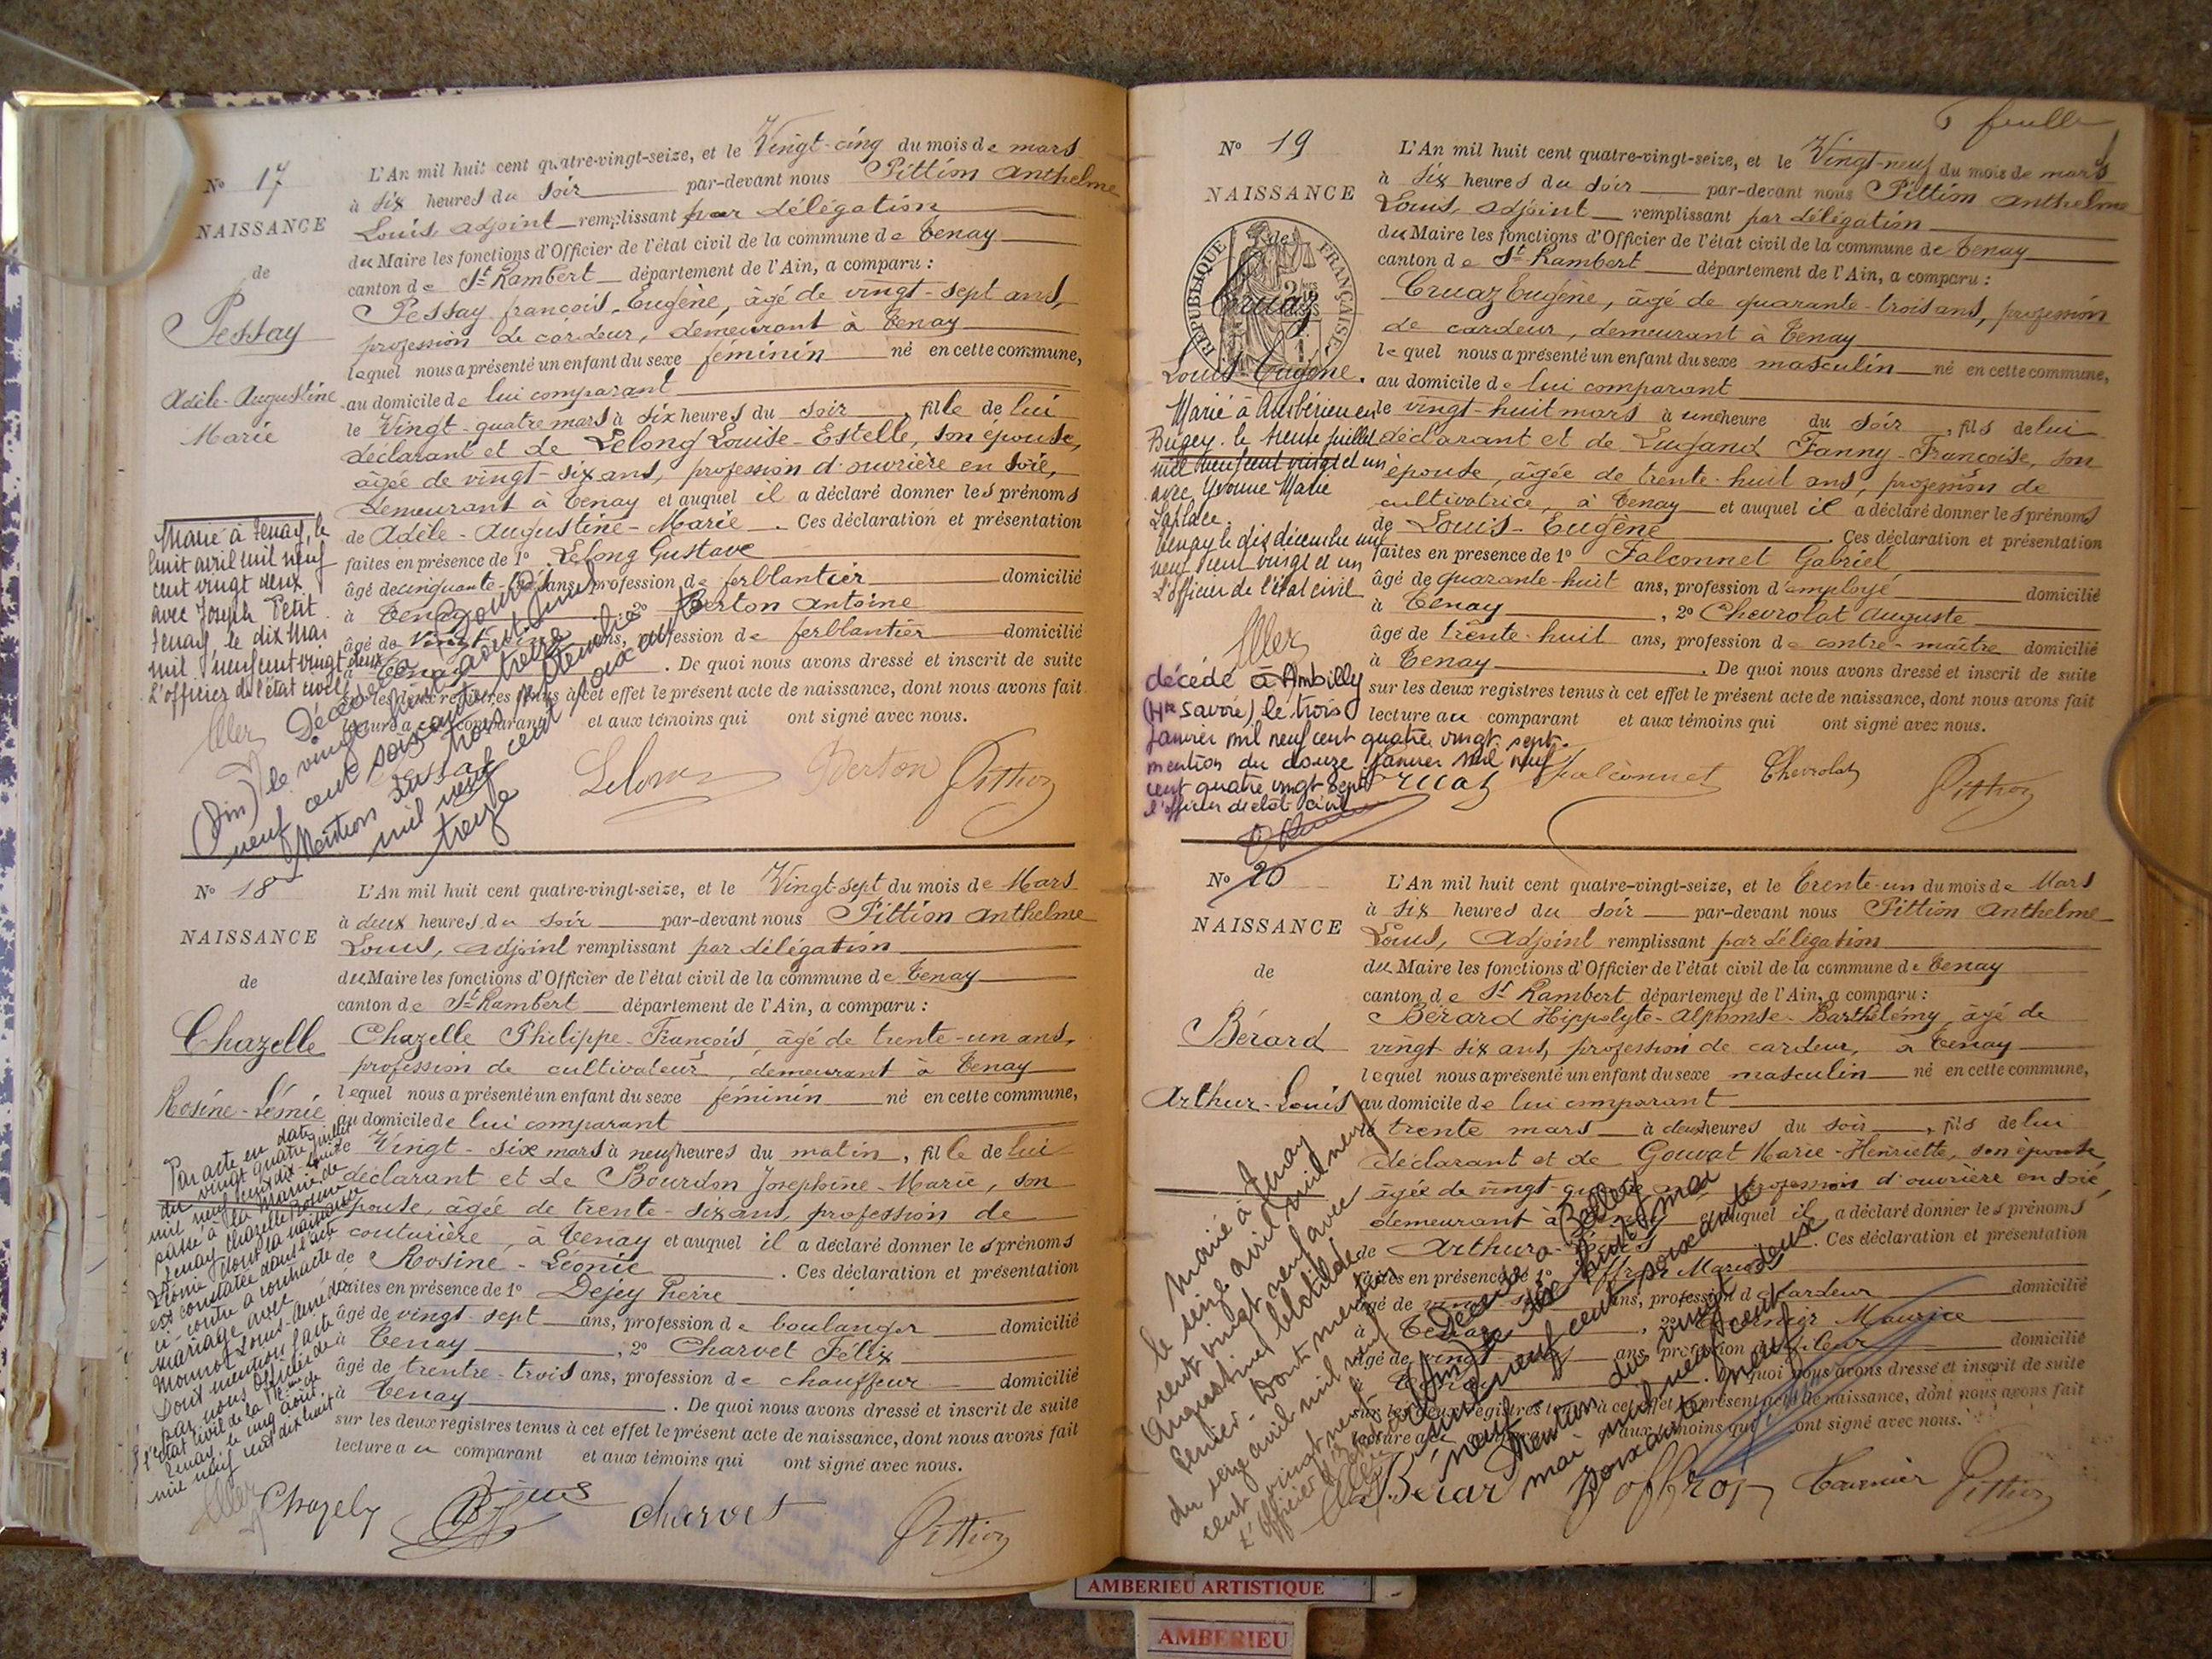 Nº 17
NAISSANCE
de
Pessay
Adèle-Augustine
Marie
L'An mil huit cent quatre-vingt-seize, et le Vingt-cinq du mois de mars
à six heures du soir par-devant nous Pittion Anthelme
Louis, adjoint remplissant par délégation
du Maire les fonctions d'Officier de l'état civil de la commune de Tenay
canton de St Rambert département de l'Ain, a comparu :
Pessay François, Eugène, âgé de vingt-sept ans,
profession de cardeur, demeurant à Tenay
lequel nous a présenté un enfant du sexe féminin né en cette commune,
au domicile de lui comparant
le Vingt-quatre mars à six heures du soir, fille de lui
déclarant et de Lelong Louise-Estelle, son épouse,
âgée de vingt-six ans, profession d'ouvrière en soie,
demeurant à Tenay et auquel il a déclaré donner les prénoms
de Adèle-Augustine-Marie. Ces déclaration et présentation
faites en présence de 1º Lelong Gustave
âgé de cinquante ans, profession de ferblantier domicilié
à Tenay, 2º Berton Antoine
âgé de Vingt ans, profession de ferblantier domicilié
à Tenay. De quoi nous avons dressé et inscrit de suite
sur les deux registres tenus à cet effet le présent acte de naissance, dont nous avons fait
lecture au comparant et aux témoins qui ont signé avec nous.
Marié à Tenay, le
huit avril mil neuf
cent vingt deux
avec Joseph Petit
Tenay, le dix Mai
mil neuf cent vingt deux
L'officier de l'état civil
Décédée à
(Ain) le vingt neuf août mil
neuf cent soixante treize
Mention hors
mil neuf cent soixante
treize
Lelong Berton Pittion
Nº 18
NAISSANCE
de
Chazelle
Rosine-Léonie
L'An mil huit cent quatre-vingt-seize, et le Vingt-sept du mois de Mars
à deux heures du soir par-devant nous Pittion Anthelme
Louis, adjoint remplissant par délégation
du Maire les fonctions d'Officier de l'état civil de la commune de Tenay
canton de St Rambert département de l'Ain, a comparu :
Chazelle Philippe-François, âgé de trente-un ans,
profession de cultivateur, demeurant à Tenay
lequel nous a présenté un enfant du sexe féminin né en cette commune,
au domicile de lui comparant
le Vingt-six mars à neuf heures du matin, fille de lui
déclarant et de Bourdon Josephine-Marie, son
épouse, âgée de trente-six ans, profession de
couturière, à Tenay et auquel il a déclaré donner les prénoms
de Rosine-Léonie. Ces déclaration et présentation
faites en présence de 1º Dejey Pierre
âgé de vingt-sept ans, profession de boulanger domicilié
à Tenay, 2º Charvet Félix
âgé de trentre-trois ans, profession de chauffeur domicilié
à Tenay. De quoi nous avons dressé et inscrit de suite
sur les deux registres tenus à cet effet le présent acte de naissance, dont nous avons fait
lecture au comparant et aux témoins qui ont signé avec nous.
Par acte en date
du vingt quatre juillet
mil neuf cent dix-huit
passé à la Mairie de
Tenay Chazelle Rosine
Léonie dont la naissance
est constatée dans l'acte
ci-contre a contracté
mariage avec
Monnot Louis-Aimé
Dont mention faite
par nous officier de
l'état civil de la
Tenay, le cinq août
mil neuf cent dix huit
Chazely charvet Pittion
6 feuille
Nº 19
NAISSANCE
de
RÉPUBLIQUE FRANÇAISE
Cruaz
Louis-Eugène.
L'An mil huit cent quatre-vingt-seize, et le Vingt-neuf du mois de mars
à six heures du soir par-devant nous Pittion Anthelme
Louis, adjoint remplissant par délégation
du Maire les fonctions d'Officier de l'état civil de la commune de Tenay
canton de St Rambert département de l'Ain, a comparu :
Cruaz Eugène, âgé de quarante-trois ans, profession
de cardeur, demeurant à Tenay
lequel nous a présenté un enfant du sexe masculin né en cette commune,
au domicile de lui comparant
le vingt-huit mars à une heure du soir, fils de lui
déclarant et de Lugand Fanny-Françoise, son
épouse, âgée de trente-huit ans, profession de
cultivatrice, à Tenay et auquel il a déclaré donner les prénoms
de Louis-Eugène. Ces déclaration et présentation
faites en présence de 1º Falconnet Gabriel
âgé de quarante-huit ans, profession d'employé domicilié
à Tenay, 2º Chevrolat Auguste
âgé de trente-huit ans, profession de contre-maître domicilié
à Tenay. De quoi nous avons dressé et inscrit de suite
sur les deux registres tenus à cet effet le présent acte de naissance, dont nous avons fait
lecture au comparant et aux témoins qui ont signé avec nous.
Marié à Ambérieu en
Bugey le trente juillet
mil neuf cent vingt et un
avec Yvonne Marie
Laplace.
Tenay le dix décembre mil
neuf cent vingt et un
L'officier de l'état civil
décédé à Ambilly
(Hte Savoie) le trois
Janvier mil neuf cent quatre vingt sept.
mention du douze Janvier mil neuf
cent quatre vingt sept
l'officier de l'état civil
Cruaz Falconnet Chevrolat Pittion
Nº 20
NAISSANCE
de
Bérard
Arthur-Louis
L'An mil huit cent quatre-vingt-seize, et le Trente-un du mois de Mars
à six heures du soir par-devant nous Pittion Anthelme
Louis, Adjoint remplissant par délégation
du Maire les fonctions d'Officier de l'état civil de la commune de Tenay
canton de St Rambert département de l'Ain, a comparu :
Bérard Hippolyte-Alphonse-Barthélemy, âgé de
vingt-six ans, profession de cardeur, à Tenay
lequel nous a présenté un enfant du sexe masculin né en cette commune,
au domicile de lui comparant
le trente mars à deux heures du soir, fils de lui
déclarant et de Gouvat Marie-Henriette, son épouse,
âgée de vingt ans, profession d'ouvrière en soie,
demeurant à Tenay et auquel il a déclaré donner les prénoms
de Arthur-Louis. Ces déclaration et présentation
faites en présence de 1º Marius
âgé de ans, profession de cardeur domicilié
à Tenay, 2º Maurice
âgé de vingt ans, profession de fileur domicilié
à Tenay. De quoi nous avons dressé et inscrit de suite
sur les deux registres tenus à cet effet le présent acte de naissance, dont nous avons fait
lecture au comparant et aux témoins qui ont signé avec nous.
Marié à Tenay
le seize avril mil neuf
cent vingt neuf avec
Augustine Clotilde
Dont mention
du seize avril mil neuf
cent vingt neuf
L'officier de l'état civil
Décédé à Belley
(Ain) le huit mai
mil neuf cent soixante
neuf
Mention du vingt deux
mai mil neuf cent
soixante neuf
Bérard Pittion
AMBERIEU ARTISTIQUE
AMBERIEU